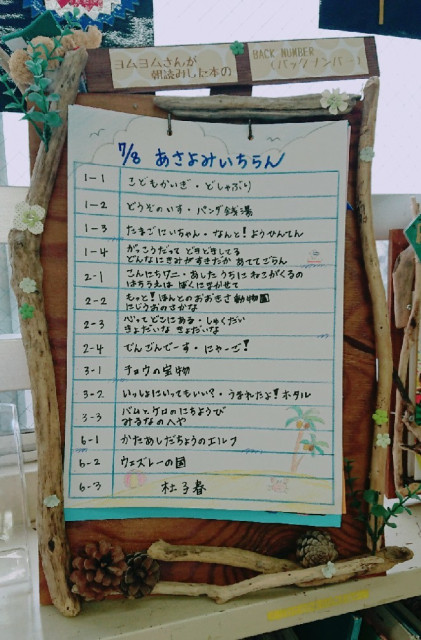 ヨムヨムさんが
朝読みした本の
BACK NUMBER
(バックナンバー)
7/8 あさよみいちらん
1-1 こどもかいぎ・どしゃぶり
1-2 どうぞのいす・パンダ銭湯
1-3 たまごにいちゃん・なんと!ようひんてん
1-4 がっこうだって どきどきしてる
どんなにきみがすきだか あててごらん
2-1 こんにちワニ・あしたうちにねこがくるの
はちうえは ぼくにまかせて
2-2 もっと!ほんとのおおきさ動物園
にじいろのさかな
2-3 へってどこにある・しゅくだい
きょだいな きょだいな
2-4 でんごんでーす・にゃーご!
3-1 チョウの宝物
3-2 いっしょにいってもいい?・うまれたよ!ホタル
3-3 バムとケロのにちようび
みるなのへや
6-1 かたあしだちょうのエルフ
6-2 ウエズレーの国
6-3 杜子春
BACK NUMBER